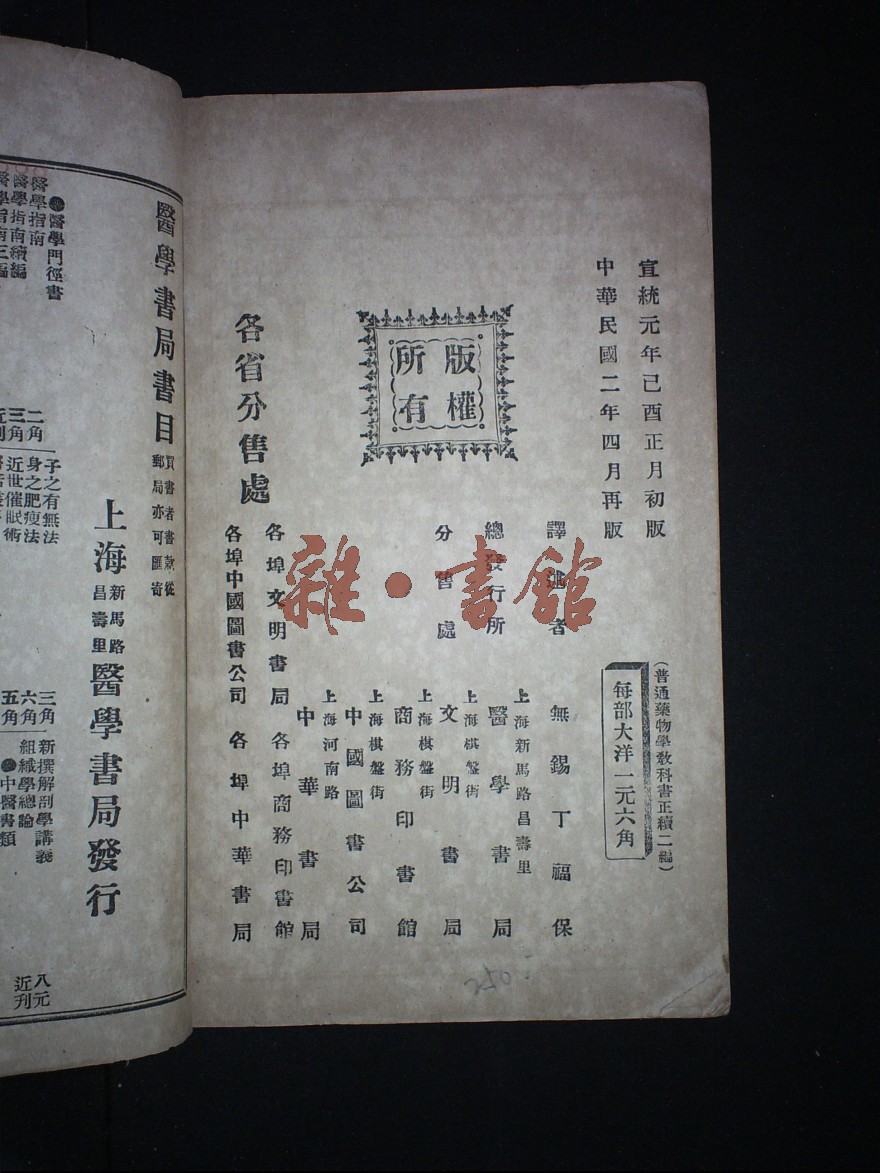 宣統元年己酉正月初版
中華民國二年四月再版
版權
所有
(普通藥物學教科書正續二編)
每部大洋一元六角
譯述者
無錫丁福保
總發行所
上海新馬路昌壽里
醫學書局
分售處
上海棋盤街
文明書局
上海棋盤街
商務印書館
上海棋盤街
中國圖書公司
上海河南路
中華書局
各省分售處
各埠文明書局
各埠商務印書館
各埠中國圖書公司
各埠中華書局
雜·書館
醫學書局書目
買書者書款從
郵局亦可匯寄
上海
新馬路
昌壽里
醫學書局發行
醫學門徑書
醫學指南
二角
醫學指南續編
三角
醫學指南三編
近刊
子之有無法
三角
身之肥瘦法
六角
近世催眠術
五角
新撰解剖學講義
八元
組織學總論
近刊
中醫書類